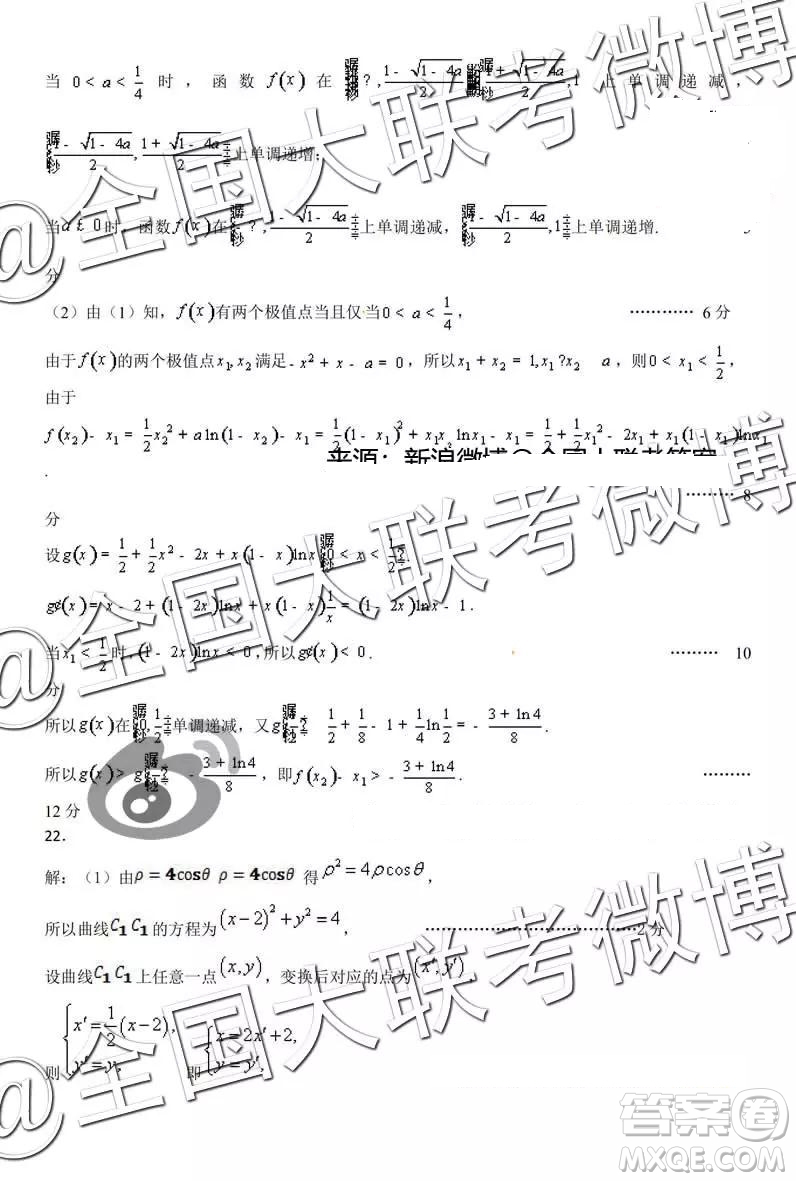 当 0 < a < 1/4 时，函数 f(x) 在 ?, (1- √(1- 4a))/2 (1+ √(1- 4a))/2 ,1 上单调递减，
(1- √(1- 4a))/2 , (1+ √(1- 4a))/2 上单调递增；
当a £ 0时，函数f(x)在 ?, (1- √(1- 4a))/2 上单调递减， (1- √(1- 4a))/2 ,1 上单调递增.
分
（2）由（1）知，f(x)有两个极值点当且仅当0 < a < 1/4， ………… 6 分
由于f(x)的两个极值点x₁,x₂满足- x² + x - a = 0，所以x₁ + x₂ = 1,x₁?x₂ a，则0 < x₁ < 1/2，
由于
f(x₂)- x₁ = 1/2 x₂² + a ln(1- x₂)- x₁ = 1/2 (1- x₁)² + x₁x₂ lnx₁ - x₁ = 1/2 + 1/2 x₁² - 2x₁ + x₁(1- x₁)lnx₁
.
……… 8
分
设g(x)= 1/2 + 1/2 x² - 2x + x(1- x)lnx 0 < x < 1/2.
g¢(x)= x - 2 + (1- 2x)lnx + x(1- x)1/x = (1- 2x)lnx - 1.
当x₁ < 1/2时，(1- 2x)lnx < 0，所以g¢(x)< 0. ……… 10
分
所以g(x)在 0, 1/2 单调递减，又g ? 1/2 + 1/8 - 1 + 1/4 ln 1/2 = - (3+ ln4)/8.
所以g(x)> g - (3+ ln4)/8，即f(x₂)- x₁ > - (3+ ln4)/8. ………
12 分
22.
解：（1）由ρ = 4cosθ ρ = 4cosθ 得ρ²=4ρcosθ，
所以曲线C₁ C₁的方程为(x-2)²+y²=4， ………………………………2 分
设曲线C₁ C₁上任意一点(x,y)，变换后对应的点为(x′,y′)，
则 { x′=1/2(x-2), y′=y, 即 { x=2x′+2, y=y′,
@全国大联考微博
@全国大联考微博
@全国大联考微博
答案卷
MXQE.COM